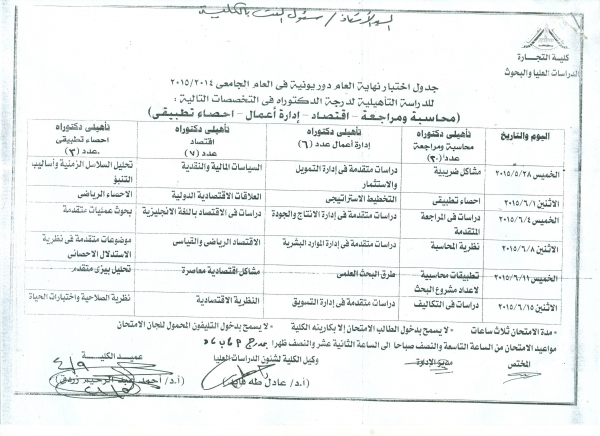 السيد الأستاذ / مسئول النت بالكلية
كلية التجارة
الدراسات العليا والبحوث
جدول اختبار نهاية العام دور يونية فى العام الجامعى ٢٠١٥/٢٠١٤
للدراسة التأهيلية لدرجة الدكتوراه فى التخصصات التالية :
(محاسبة ومراجعة - اقتصاد - إدارة أعمال - احصاء تطبيقى)
اليوم والتاريخ | تأهيلى دكتوراه محاسبة ومراجعة عدد (٢٠) | تأهيلى دكتوراه إدارة أعمال عدد (٦) | تأهيلى دكتوراه اقتصاد عدد (٧) | تأهيلى دكتوراه احصاء تطبيقى عدد (٣)
الخميس ٢٠١٥/٥/٢٨ | مشاكل ضريبية | دراسات متقدمة فى إدارة التمويل والاستثمار | السياسات المالية والنقدية | تحليل السلاسل الزمنية وأساليب التنبؤ
الاثنين ٢٠١٥/٦/١ | احصاء تطبيقى | التخطيط الاستراتيجى | العلاقات الاقتصادية الدولية | الاحصاء الرياضى
الخميس ٢٠١٥/٦/٤ | دراسات فى المراجعة المتقدمة | دراسات متقدمة فى إدارة الانتاج والجودة | دراسات فى الاقتصاد باللغة الانجليزية | بحوث عمليات متقدمة
الاثنين ٢٠١٥/٦/٨ | نظرية المحاسبة | دراسات متقدمة فى إدارة الموارد البشرية | الاقتصاد الرياضى والقياسى | موضوعات متقدمة فى نظرية الاستدلال الاحصائى
الخميس ٢٠١٥/٦/١١ | تطبيقات محاسبية لاعداد مشروع البحث | طرق البحث العلمى | مشاكل اقتصادية معاصرة | تحليل بيزى متقدم
الاثنين ٢٠١٥/٦/١٥ | دراسات فى التكاليف | دراسات متقدمة فى إدارة التسويق | النظرية الاقتصادية | نظرية الصلاحية واختبارات الحياة
• مدة الامتحان ثلاث ساعات • لا يسمح بدخول الطالب الامتحان إلا بكارنيه الكلية • لا يسمح بدخول التليفون المحمول للجان الامتحان
مواعيد الامتحان من الساعة التاسعة والنصف صباحا الى الساعة الثانية عشر والنصف ظهرا
المختص مدير الإدارة وكيل الكلية لشئون الدراسات العليا عميد الكلية
(أ.د/ عادل طه فايد) (أ.د/ أحمد عبد الرحيم زردق)